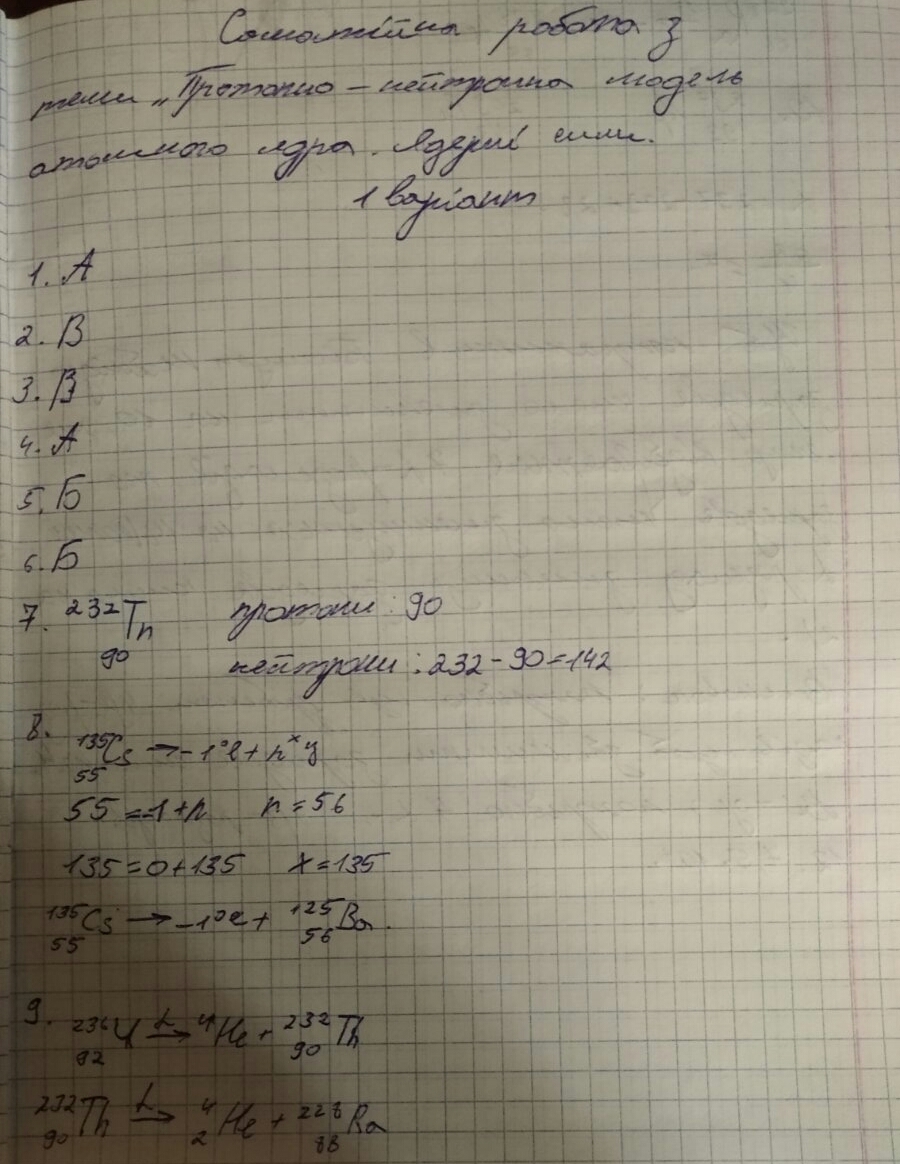 Самостійна робота з
теми „Протонно – нейтронна модель
атомного ядра. Ядерні сили.
1 варіант
1. А
2. В
3. В
4. А
5. Б
6. Б
7. ²³²₉₀Th протони : 90
нейтрони : 232 - 90 = 142
8. ¹³⁵₅₅Cs → -1⁰e + nˣy
55 = -1 + n n = 56
135 = 0 + 135 x = 135
¹³⁵₅₅Cs → -1⁰e + ¹²⁵₅₆Ba.
9. ²³⁶₉₂U →ᵅ ⁴He + ²³²₉₀Th
²³²₉₀Th →ᵅ ⁴₂He + ²²⁸₈₈Ra